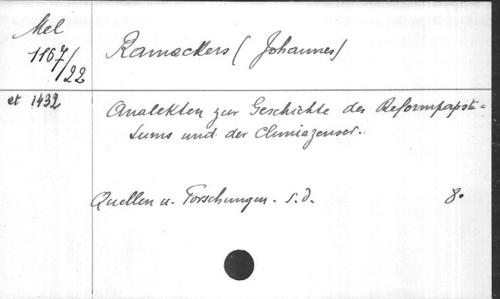 Mel
1167/22
Ramackers (Johannes)
et 1432
Analekten zur Geschichte des Reformpapst-
tums und der Cluniazenser.
Quellen u. Forschungen. s.d. 8°